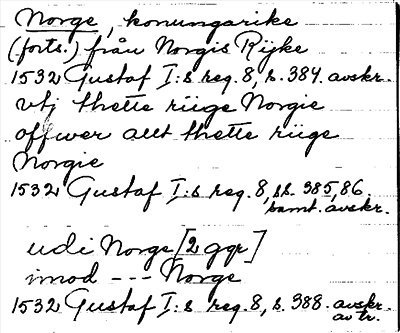 Norge, konungarike
(forts.) från Norgis Rijke
1532 Gustaf I:s reg. 8, s. 384. avskr.
vtj thette riige Norgie
offwer allt thette riige
Norgie
1532 Gustaf I:s reg. 8, ss. 385, 86.
samt. avskr.
udi Norge [2 ggr]
imod --- Norge
1532 Gustaf I:s reg. 8, s. 388. avskr.
av tr.